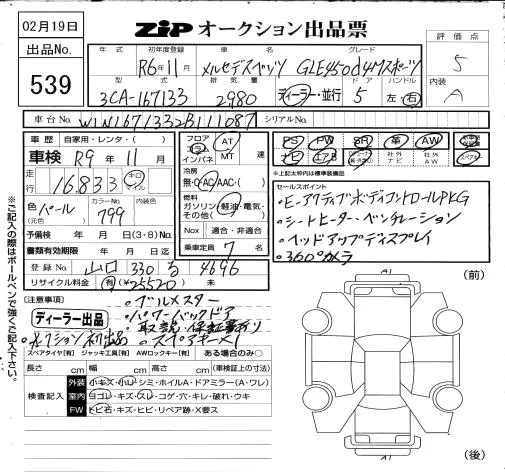 02月19日
ZiP オークション出品票
出品No.
539
評価点
5
内装
A
年式 初年度登録 車名 グレード
R6年11月 メルセデスベンツ GLE450d4Mスポーツ
型式 排気量 ドア ハンドル
3CA-167133 2980 ディーラー・並行 5 左・右
車台No. W1N1671332B111087 シリアルNo.
車歴 自家用・レンタ・( )
車検 R9年11月
走行 16,833 キロ マイル
フロア コラム インパネ AT MT 速
冷房 無・O・AC・AAC・( )
燃料 ガソリン・軽油・電気・その他( )
PS PW SR 革 AW
ナビ エアB 社外ナビ 社外AW
*上記太枠内は標準装備品
色 パール (元色)
カラーNo. 799 内装色
予備検 年 月 日(3・8)
Nox 適合・非適合
書類有効期限 年 月 日迄
乗車定員 7 名
登録No. 山口 330 る 4696
リサイクル料金 有(¥25520) 未
セールスポイント
・E-アクティブボディコントロールPKG
・シートヒーター・ベンチレーション
・ヘッドアップディスプレイ
・360°カメラ
※ご記入の際はボールペンで強くご記入下さい。
(注意事項)
・ブルメスター
ディーラー出品
・パワーバックドア
・取説・保証書有り
・オークション初出品
・スペアキー×1
スペアタイヤ[有] ジャッキ工具[有] AWロックキー[有] ある場合のみ○
長さ cm 幅 cm 高さ cm (車検証上の寸法)
検査記入
外装 小キズ・小凹・シミ・ホイルA・ドアミラー(A・ワレ)
室内 ヨゴレ・キズ・スレ・コゲ・穴・キレ・破れ・ウキ
FW トビ石・キズ・ヒビ・リペア跡・X要ス
(前)
(後)